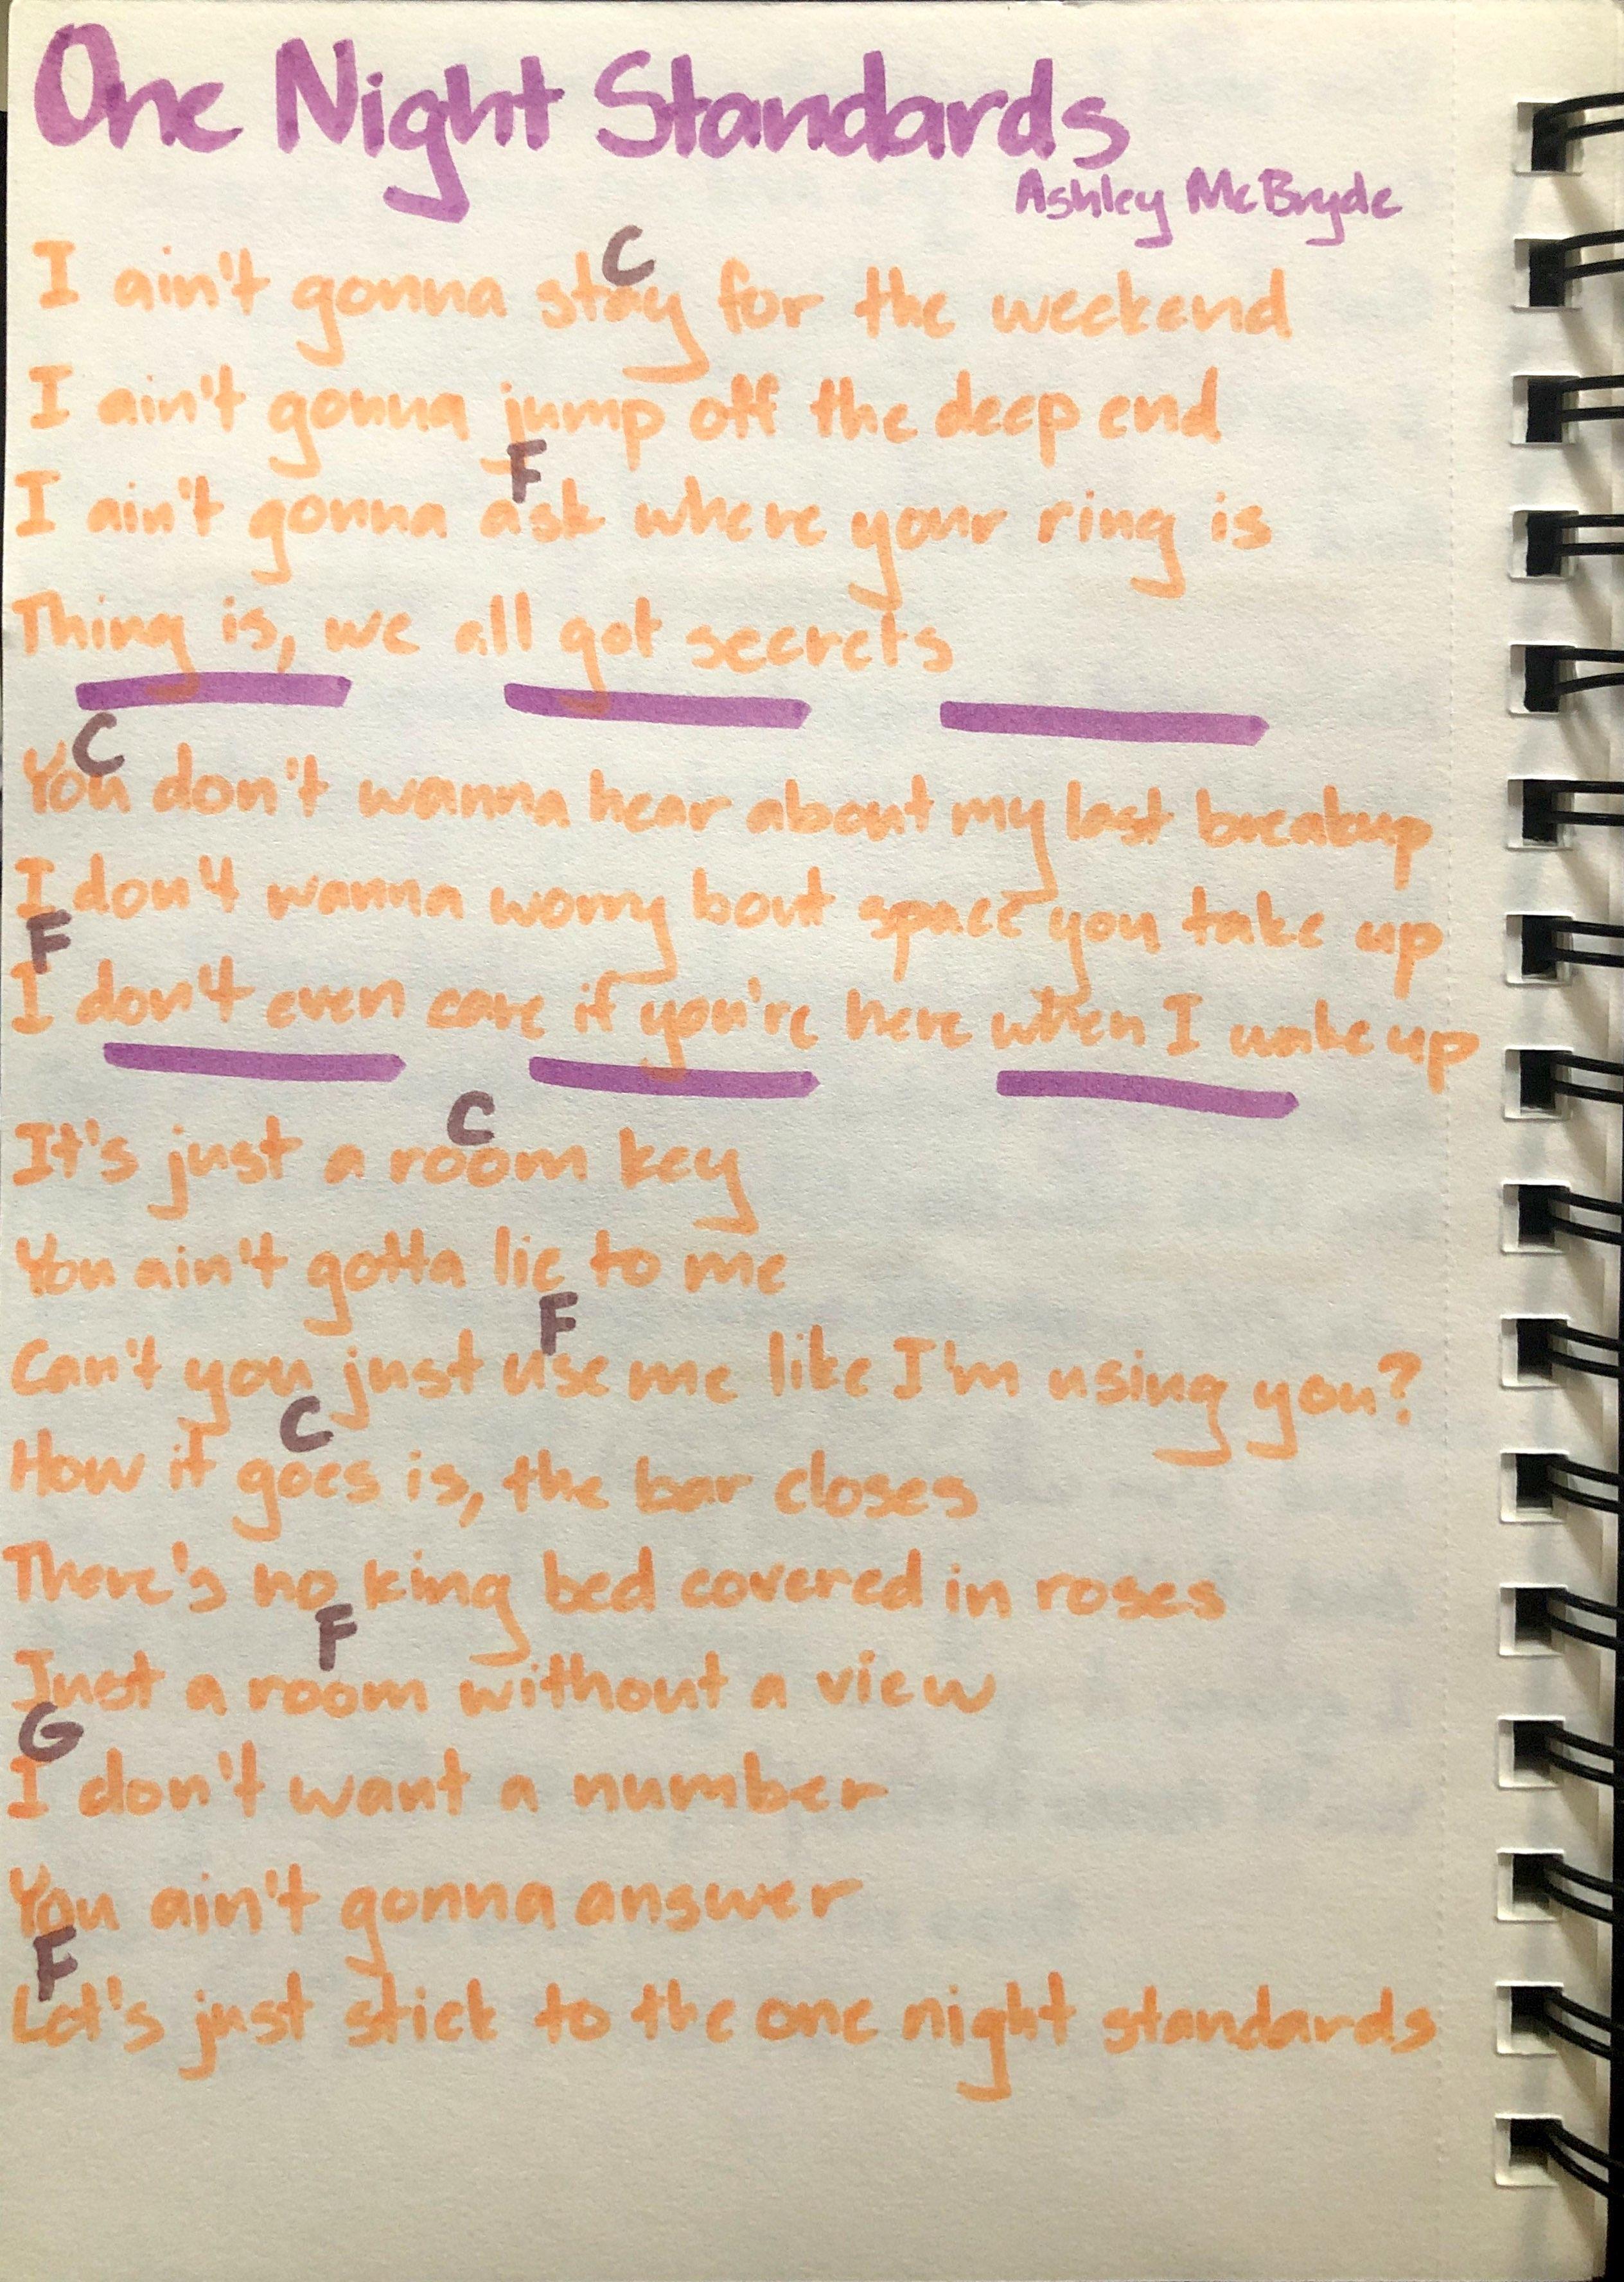 One Night Standards
Ashley McBryde
C
I ain't gonna stay for the weekend
I ain't gonna jump off the deep end
F
I ain't gonna ask where your ring is
Thing is, we all got secrets
C
You don't wanna hear about my last breakup
I don't wanna worry bout space you take up
F
I don't even care if you're here when I wake up
C
It's just a room key
You ain't gotta lie to me
F
Can't you just use me like I'm using you?
C
How it goes is, the bar closes
There's no king bed covered in roses
F
Just a room without a view
G
I don't want a number
You ain't gonna answer
F
Let's just stick to the one night standards